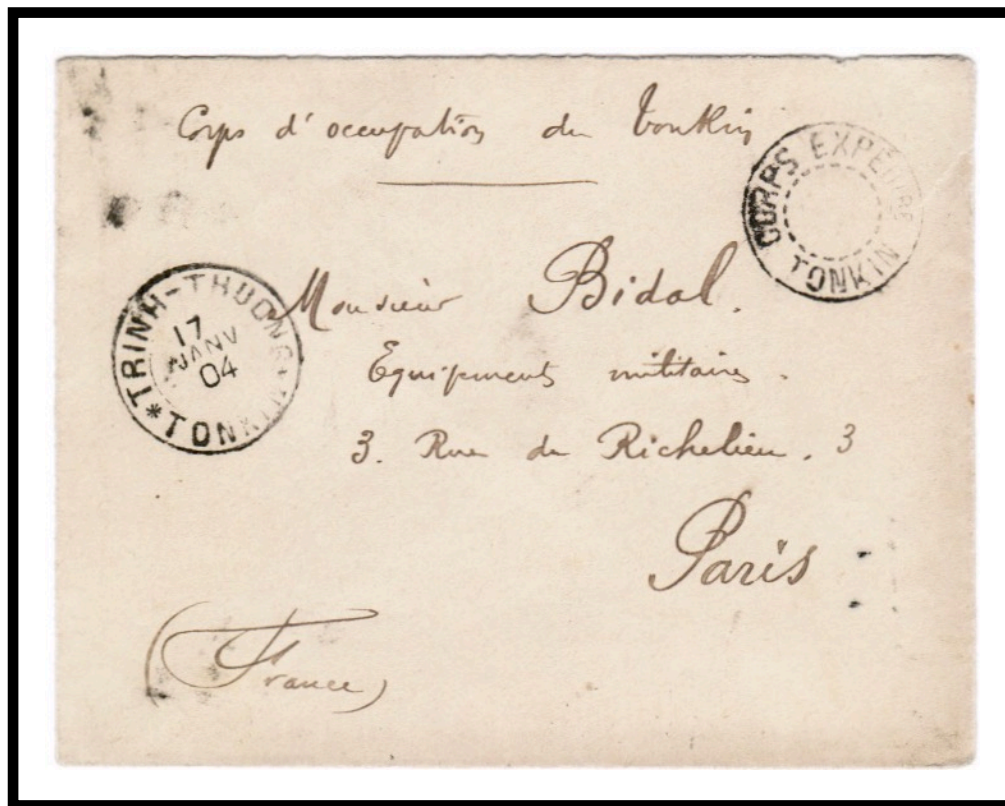 Corps d'occupation du Tonkin
CORPS EXPEDRE
TONKIN
*TRINH-THUONG*
17
JANV
04
TONKIN
Monsieur Bidal.
Equipments militaires.
3. Rue de Richelieu. 3
Paris
(France)